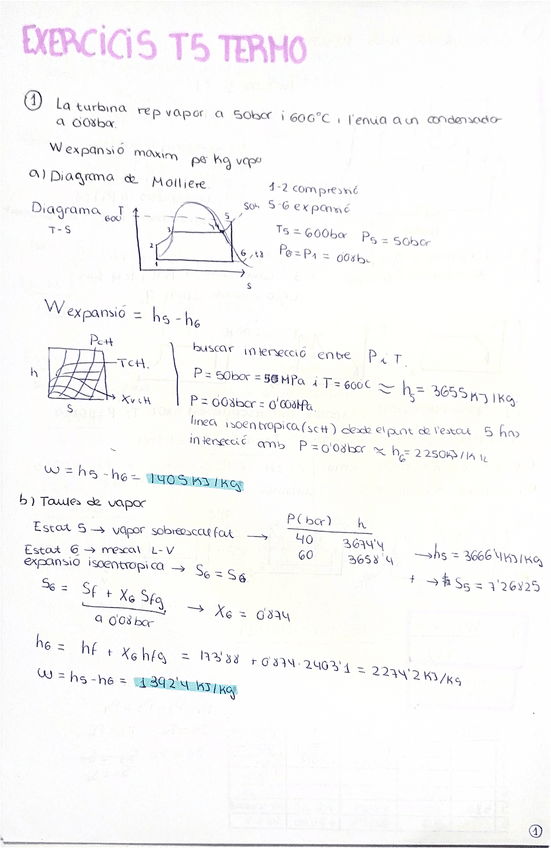 EXERCICIS T5 TERMO
① La turbina rep vapor a 50bar i 600°C i l'envia a un condensador
a 0'08bar.
W expansió maxim per kg vapor
a) Diagrama de Molliere
1-2 compresió
5-6 expansió
Diagrama
T-S
600°
T
2
3
5
6
S
T5 = 600bar P5 = 50bar
P6 = P1 = 0'08bar
W expansió = h5 - h6
h
S
PctH
TctH.
XvctH
buscar intersecció entre P i T.
P = 50bar = 50 MPa i T = 600C ≈ h5 = 3655KJ/Kg
P = 0'08bar = 0'008MPa.
linea isoentropica (sctH) desde el punt de l'estat 5 fins
intersecció amb P = 0'08bar ≈ h6 = 2250KJ/Kg
w = h5 - h6 = 1405 KJ/Kg
b) Taules de vapor
Estat 5 → vapor sobreescalfat →
P(bar) h
40 3674'4
60 3658'4
→ h5 = 3666'4KJ/Kg
+ → S5 = 7'26825
Estat 6 → mescal L-V
expansió isoentropica → S6 = S6
S6 = Sf + X6 Sfg → X6 = 0'874
a 0'08bar
h6 = hf + X6 hfg = 173'88 + 0'874 · 2403'1 = 2274'2 KJ/Kg
w = h5 - h6 = 1392'4 KJ/Kg
①